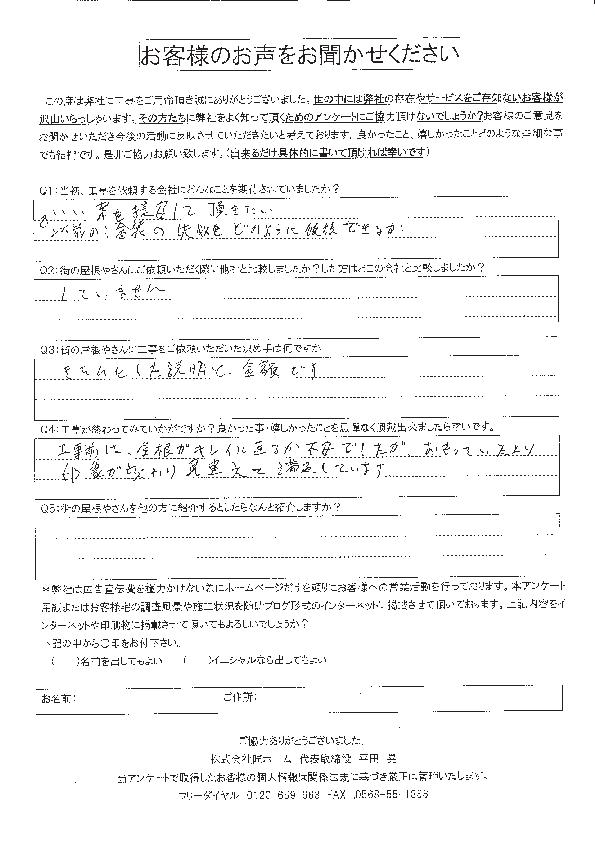 お客様のお声をお聞かせください
この度は弊社に工事をご用命頂き誠にありがとうございました。世の中には弊社の存在やサービスをご存知ないお客様が
沢山いらっしゃいます。その方たちに弊社をよく知って頂くためのアンケートにご協力頂けないでしょうか?お客様のご意見を
お聞かせいただき今後の活動に反映させていただきたいと考えております。良かったこと、嬉しかったことどのような些細な事
でも結構です。是非ご協力お願い致します。(出来るだけ具体的に書いて頂ければ幸いです)
Q1:当初、工事を依頼する会社にどんなことを期待されていましたか?
いい 業を して頂きたい
以前の 塗装の失敗をどのように修復できるか
Q2:街の屋根やさんにご依頼いただく際に他社と比較しましたか?した方はどこの会社と比較しましたか?
していません
Q3:街の屋根やさんに工事をご依頼いただいた決め手は何ですか
きちんとした説明と、金額です
Q4:工事が終わってみていかがですか?良かった事・嬉しかったことを忌憚なく頂戴出来ましたら幸いです。
工事前は、屋根がキレイに直るか不安でしたが、おもっていたより
印象が変わり 見違えて満足しています
Q5:街の屋根やさんを他の方に紹介するとしたらなんと紹介しますか?
*弊社は広告宣伝費を極力かけない為にホームページだけを頼りにお客様への営業活動を行っております。本アンケート
用紙またはお客様宅の調査風景や施工状況を随時ブログ形式のインターネットに掲載させて頂いております。上記内容をイ
ンターネットや印刷物に掲載させて頂いてもよろしいでしょうか?
下記の中から〇印をお付下さい。
( )名前を出してもよい ( )イニシャルなら出してもよい
お名前: ご住所:
ご協力ありがとうございました。
株式会社 ホーム 代表取締役 平田
当アンケートで取得したお客様の個人情報は関係法令に基づき厳正に管理いたします。
フリーダイヤル 0120-659- FAX